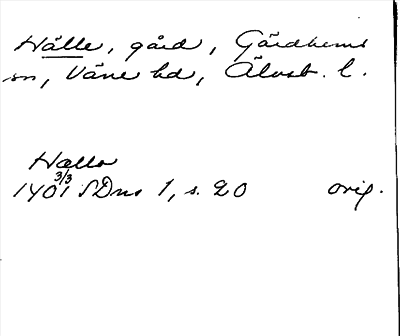 Hälle, gård, Gärdhems
sn, Väne hd, Älvsb. l.
Hællo
3/3
1401 SDns 1, s. 20 orig.